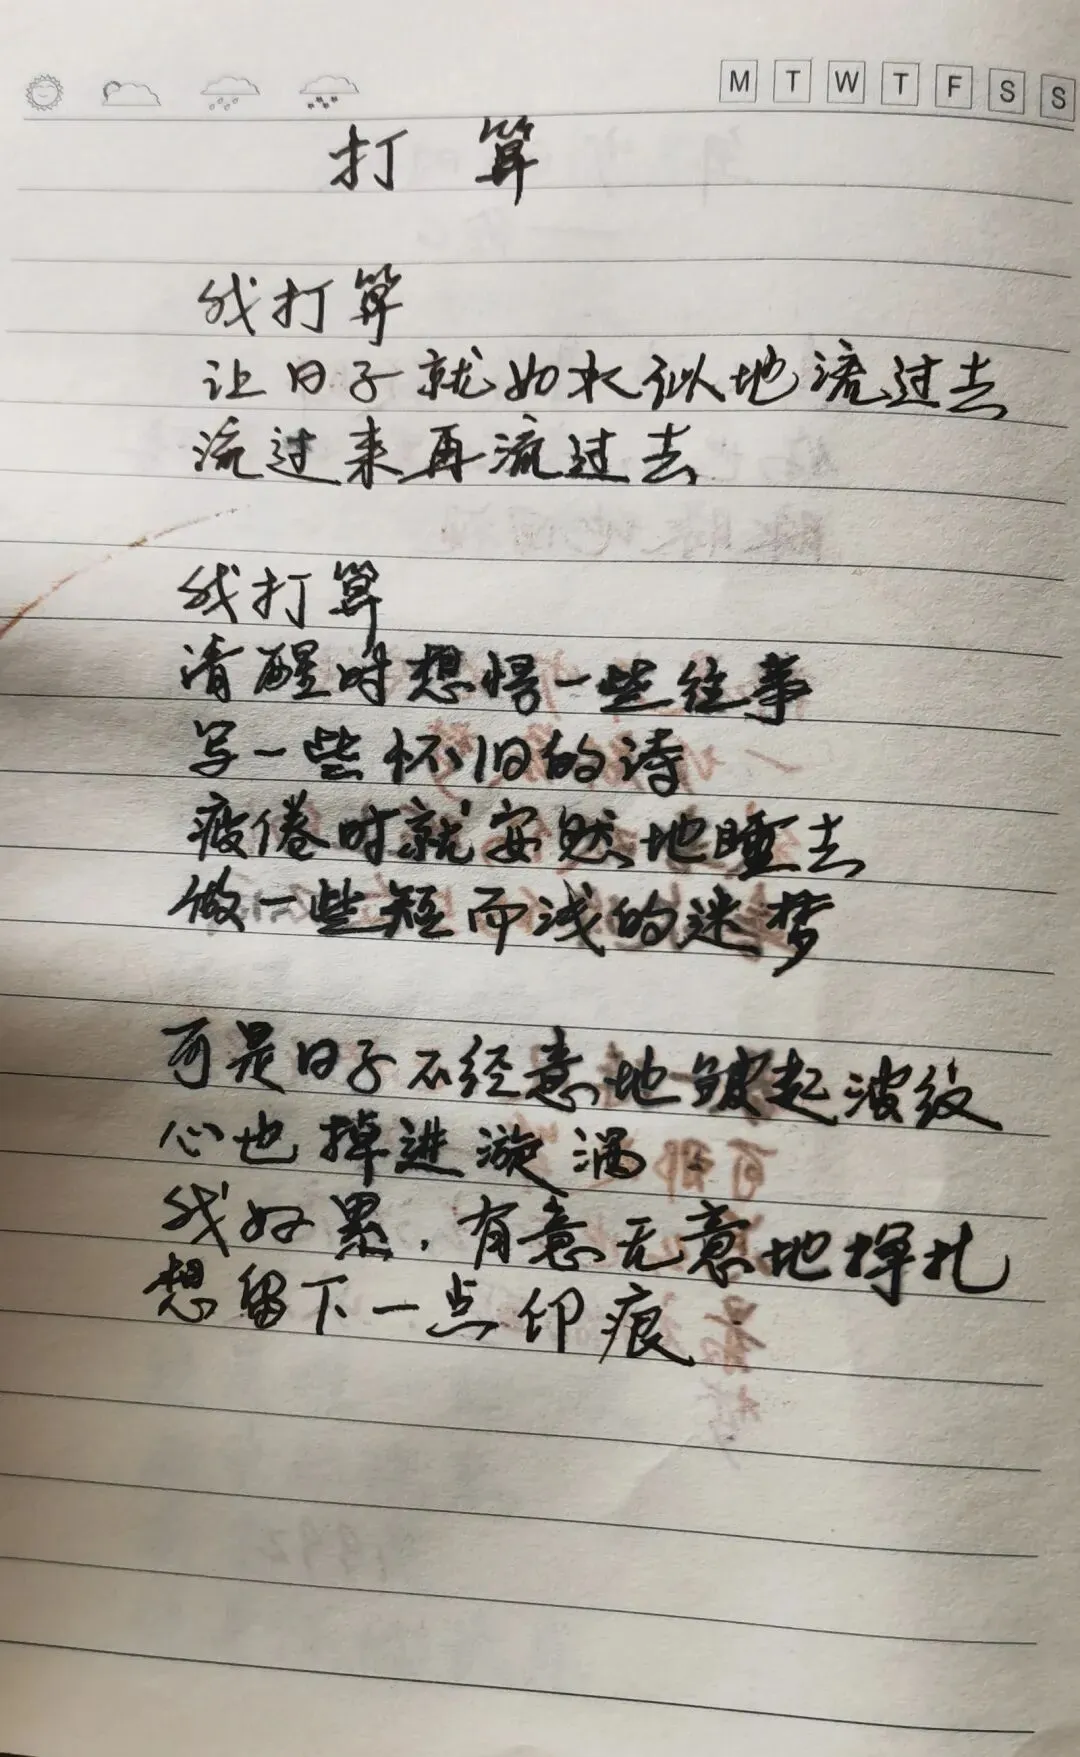 M T W T F S S
打算
我打算
让日子就如水似地流过去
流过来再流过去
我打算
清醒时想想一些往事
写一些怀旧的诗
疲倦时就安然地睡去
做一些短而浅的迷梦
可是日子不经意地皱起波纹
心也掉进漩涡
我好累，有意无意地挣扎
想留下一点印痕